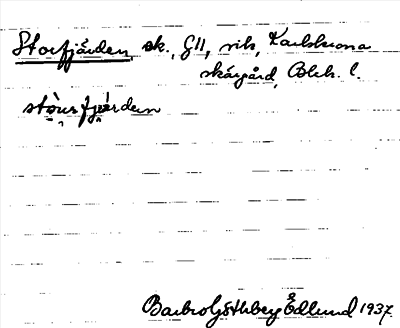 Storfjärden, sk., G11, vik, Karlskrona
skärgård, Blek. l.
stòurfjárden
Barbro Göthberg Edlund 1937.